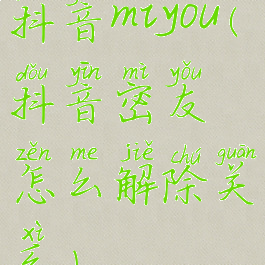 抖音miyou(
dǒu yīn mì yǒu
抖音密友
zěn me jiě chú guān
怎么解除关
xì
系)